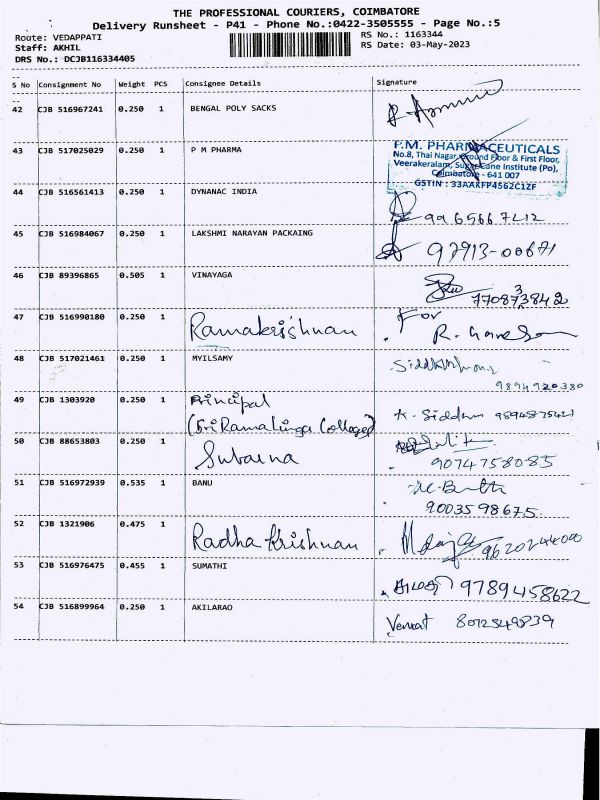 THE PROFESSIONAL COURIERS, COIMBATORE
Delivery Runsheet - P41 - Phone No.:0422-3505555 - Page No.:5
Route: VEDAPPATI RS No.: 1163344
Staff: AKHIL RS Date: 03-May-2023
DRS No.: DCJB116334405
S No Consignment No Weight PCS Consignee Details Signature
42 CJB 516967241 0.250 1 BENGAL POLY SACKS
43 CJB 517025029 0.250 1 P M PHARMA P.M. PHARMACEUTICALS
No.8, Thai Nagar, Ground Floor & First Floor,
Veerakeralam, Sugar Cane Institute (Po),
Coimbatore - 641 007
GSTIN : 33AAKFP4562C1ZF
44 CJB 516561413 0.250 1 DYNANAC INDIA
9965667212
45 CJB 516984067 0.250 1 LAKSHMI NARAYAN PACKAING
97913-00671
46 CJB 89396865 0.505 1 VINAYAGA
47 CJB 516990180 0.250 1 Ramakrishnan For
48 CJB 517021461 0.250 1 MYILSAMY
9894920380
49 CJB 1303920 0.250 1 Principal
(Sri Ramalinga College) K. 9894875421
50 CJB 88653803 0.250 1 Subaina
9074758085
51 CJB 516972939 0.535 1 BANU
9003598675
52 CJB 1321906 0.475 1 Radha Krishnan
53 CJB 516976475 0.455 1 SUMATHI
9789458622
54 CJB 516899964 0.250 1 AKILARAO
Venkat 8072549839